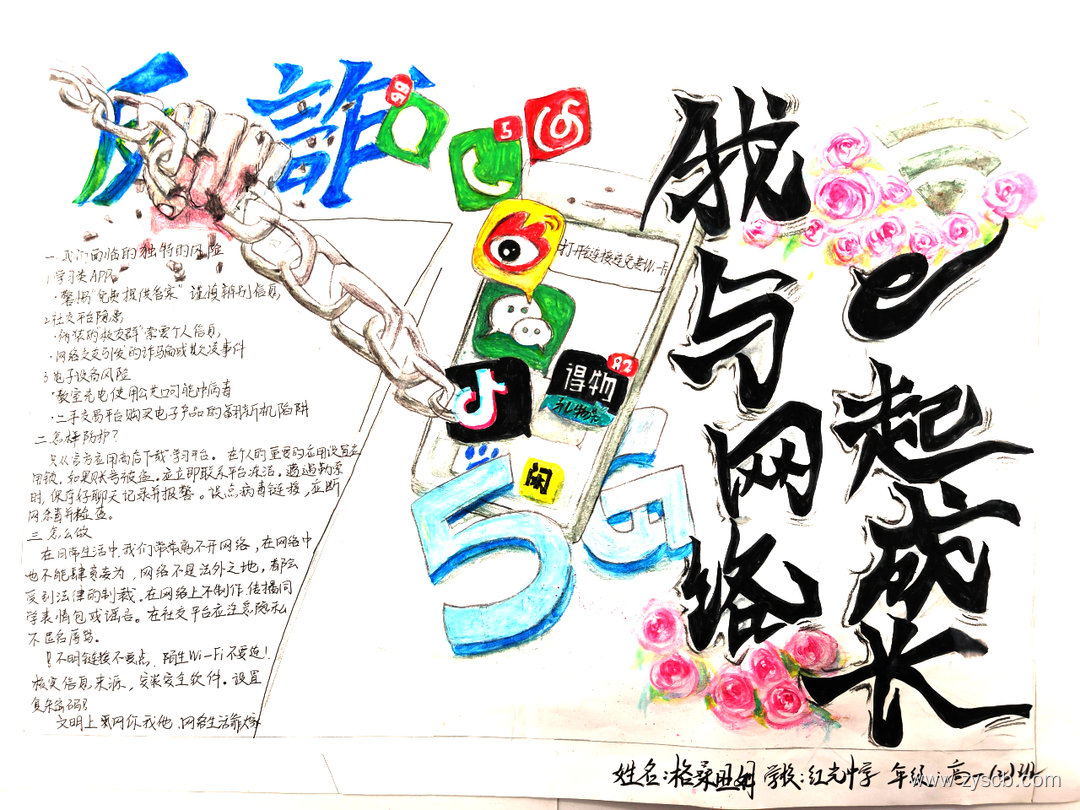 反诈
我与网络
e起成长
96
5
打开电连接连免费Wi-Fi
得物
82
礼物
闲
5G
一.我们面临的独特的风险
1.学习类APP
·警惕"免费提供答案" 谨慎辨别信息
2.社交平台隐患
·伪装的"校友群"索要个人信息
·网络交友引发的诈骗或欺凌事件
3.电子设备风险
·教室充电使用公共口可能中病毒
·二手交易平台购买电子产品的翻新机陷阱
二.怎样防护?
只从官方应用商店下载学习平台。在个人的重要的应用设置
密码,如果账号被盗,应立即联系平台冻结。遭遇勒索
时,保存好聊天记录并报警。误点病毒链接,应断
网杀毒并检查。
三.怎么做
在日常生活中,我们常常离不开网络,在网络中
也不能肆意妄为,网络不是法外之地,都会
受到法律的制裁。在网络上不制作,传播同
学表情包或谣言。在社交平台应注意隐私,
不匿名辱骂。
!不明链接不要点,陌生Wi-Fi不要连!
核实信息来源,安装安全软件。设置
复杂密码!
文明上网你我他,网络生活靠大家
姓名:格桑旺姆 学校:红光中学 年级:高一
www.zyscb.com